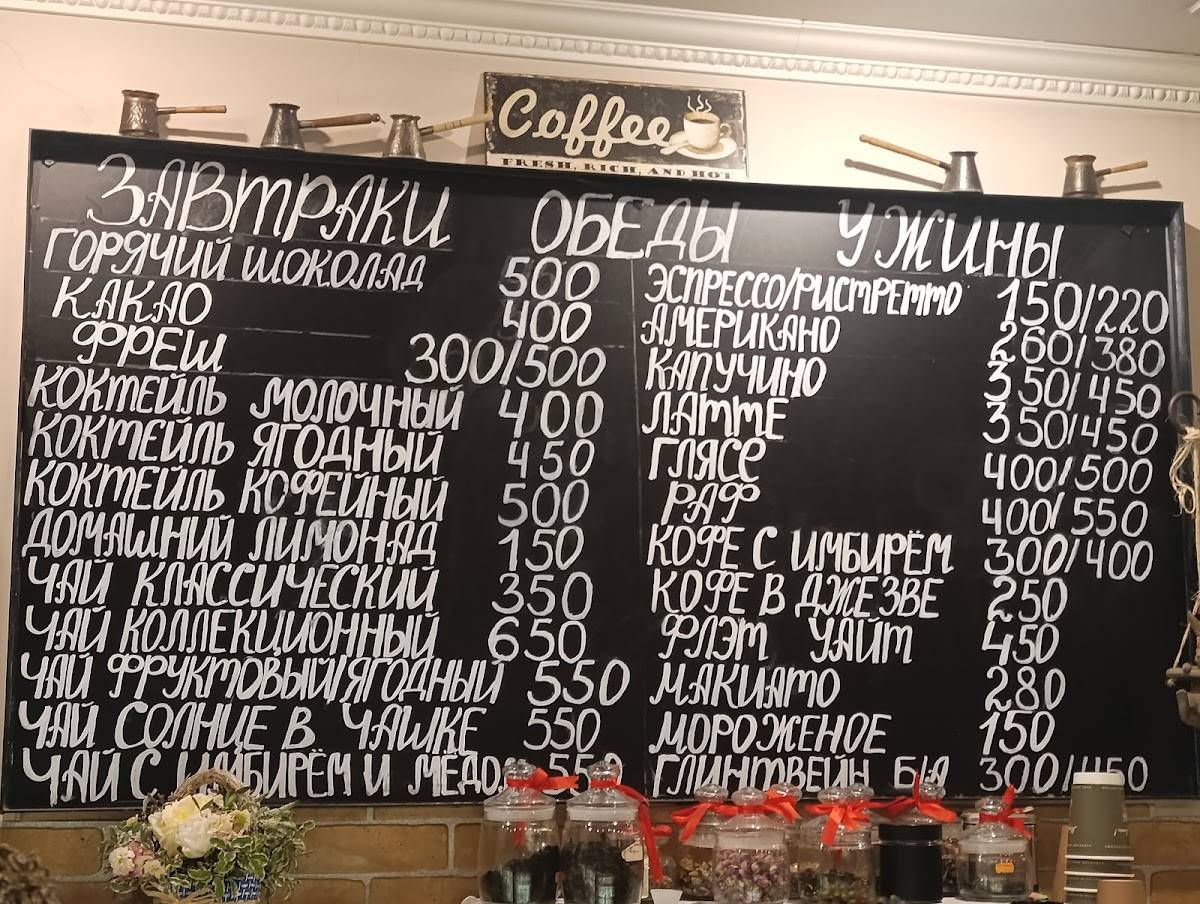 Coffee
FRESH, RICH, AND HOT
ЗАВТРАКИ ОБЕДЫ УЖИНЫ
ГОРЯЧИЙ ШОКОЛАД 500
КАКАО 400
ФРЕШ 300/500
КОКТЕЙЛЬ МОЛОЧНЫЙ 400
КОКТЕЙЛЬ ЯГОДНЫЙ 450
КОКТЕЙЛЬ КОФЕЙНЫЙ 500
ДОМАШНИЙ ЛИМОНАД 150
ЧАЙ КЛАССИЧЕСКИЙ 350
ЧАЙ КОЛЛЕКЦИОННЫЙ 650
ЧАЙ ФРУКТОВЫЙ/ЯГОДНЫЙ 550
ЧАЙ СОЛНЦЕ В ЧАШКЕ 550
ЧАЙ С ИМБИРЁМ И МЁДОМ 550
ЭСПРЕССО/РИСТРЕТТО 150/220
АМЕРИКАНО 260/380
КАПУЧИНО 350/450
ЛАТТЕ 350/450
ГЛЯСЕ 400/500
РАФ 400/550
КОФЕ С ИМБИРЁМ 300/400
КОФЕ В ДЖЕЗВЕ 250
ФЛЭТ УАЙТ 450
МАКИАТО 280
МОРОЖЕНОЕ 150
ГЛИНТВЕЙН Б/А 300/450